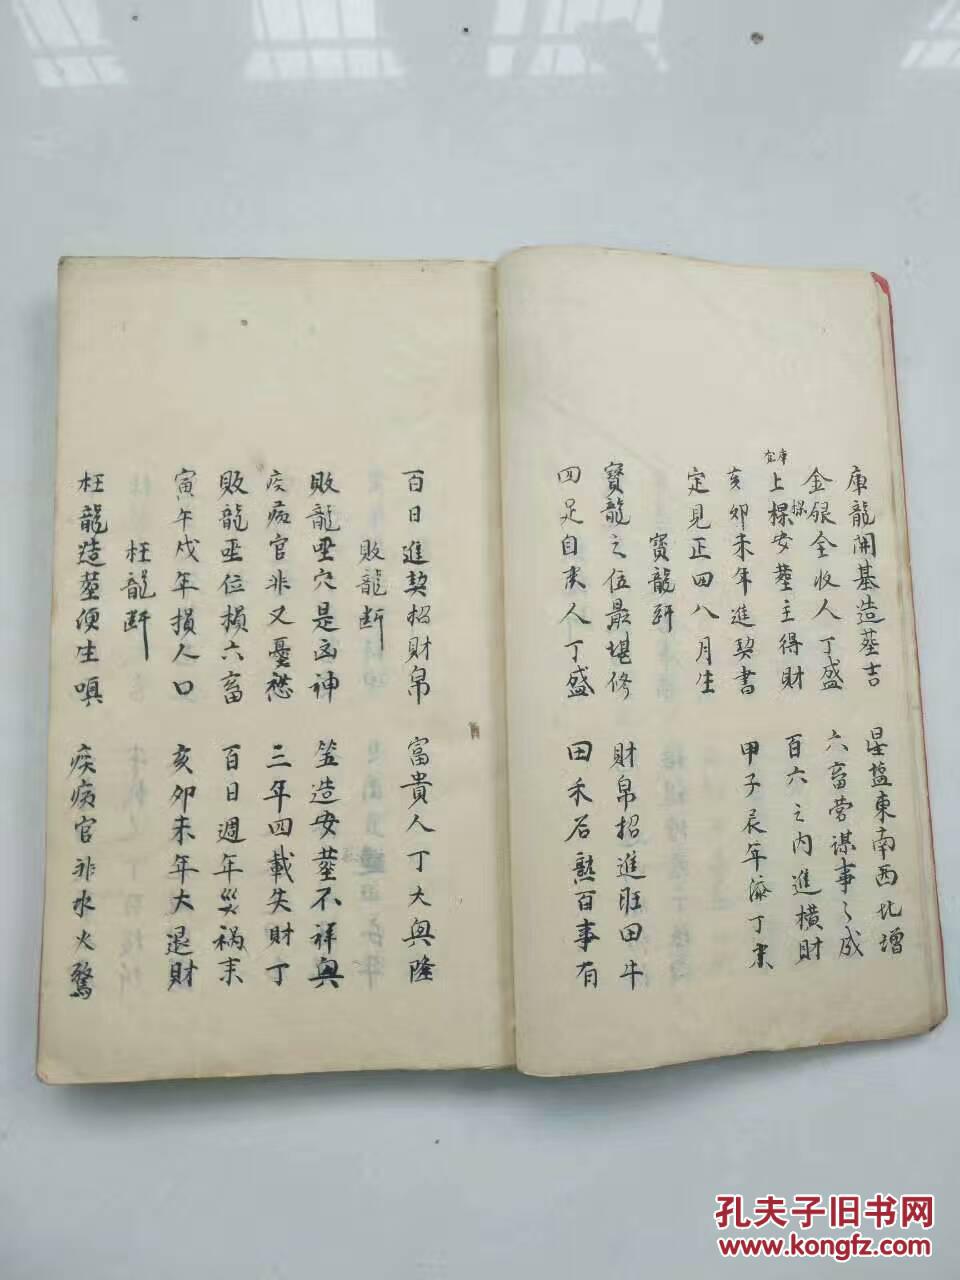 庫龍開基造葬吉 星盤東南西北增
金銀全收人丁盛 六畜営謀事々成
上課安葬主得財 百六之内進横財
庫
課
亥卯未年進契書 甲子辰年添丁來
定見正四八月生
寶龍斷
寶龍之位最堪修 財帛招進旺田牛
四足自来人丁盛 田禾石熟百事有
百日進契招財帛 富貴人丁大興隆
敗龍断
敗龍垩穴是凶神 竖造安葬不祥興
疾病官非又憂愁 三年四載失財丁
敗龍垩位損六畜 百日週年災禍来
寅午戍年損人口 亥卯未年大退財
枉龍断
枉龍造葬便生嗔 疾病官非水火驚
孔夫子旧书网
www.kongfz.com